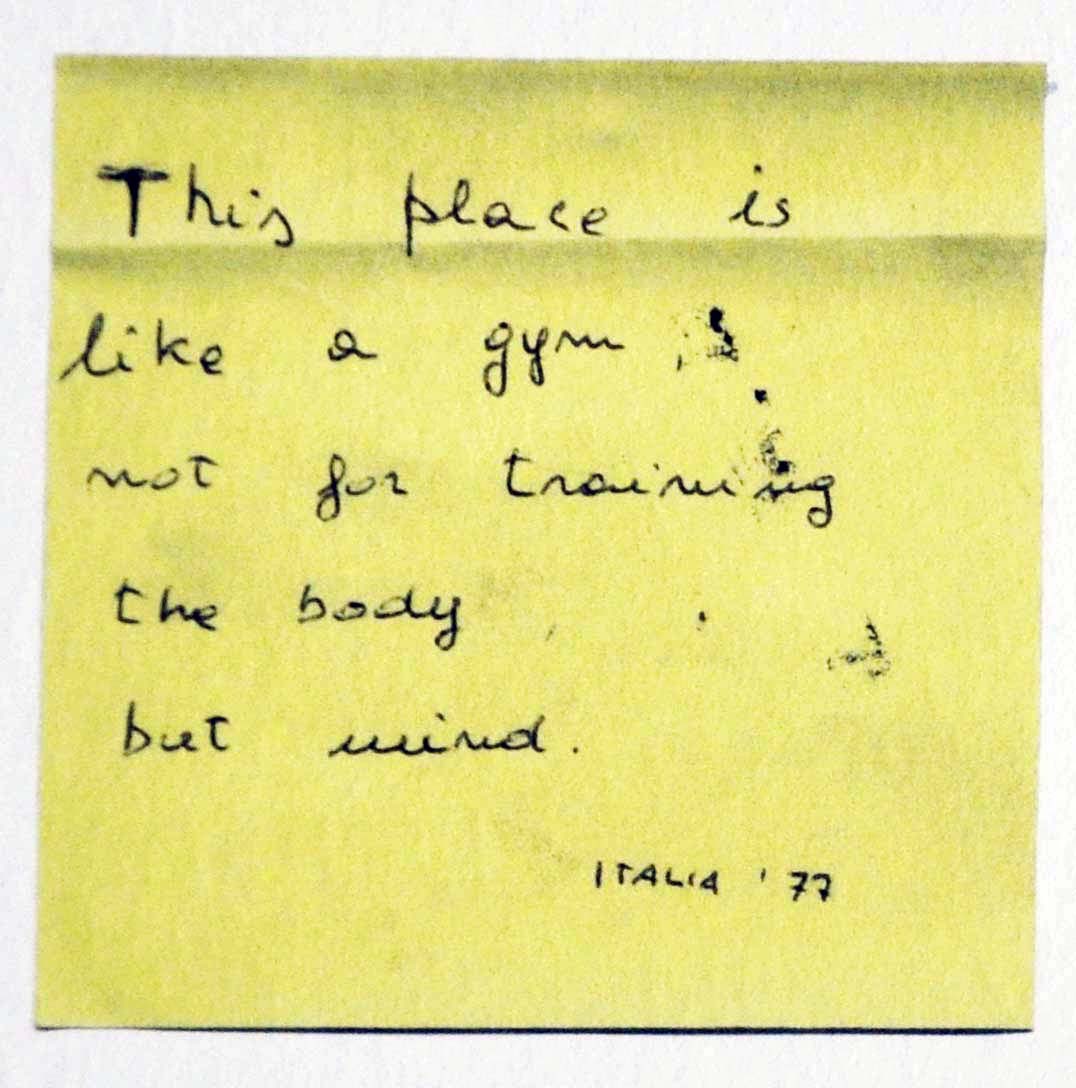 This place is
like a gym,
not for training
the body
but mind.
ITALIA '77